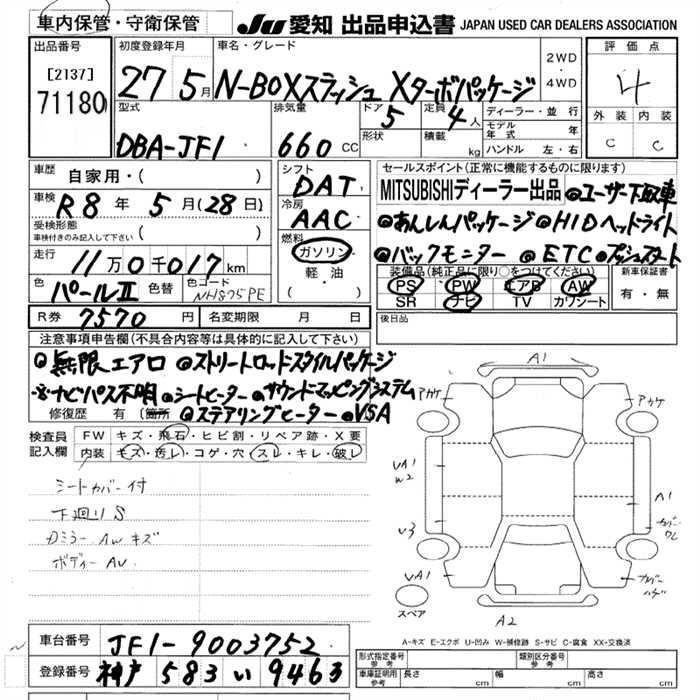 車内保管・守衛保管 JU 愛知 出品申込書 JAPAN USED CAR DEALERS ASSOCIATION
出品番号 [2137] 71180
初度登録年月 27 5月
車名・グレード N-BOXスラッシュ Xターボパッケージ
2WD
4WD
評価点 4
外装 内装
C C
型式 DBA-JF1
排気量 660 CC
ドア 5
形状
定員 4人
積載 kg
ディーラー・並行
モデル年式 年
ハンドル 左・右
車歴 自家用・( )
車検 R8年 5月(28日)
受検形態
車検付きのみ記入して下さい ( )
走行 11万0千017km
色 パールⅡ 色替 色コード NH875PE
R券 7570円 名変期限 月 日
シフト DAT
冷房 AAC
燃料 ガソリン
軽・油
( )
セールスポイント(正常に機能するものに限ります)
MITSUBISHIディーラー出品 ◎ユーザー下取車
◎あんしんパッケージ ◎HIDヘッドライト
◎バックモニター ◎ETC ◎プッシュスタート
装備品(純正品に限り○をつけてください)
PS PW エアB AW
SR ナビ TV カワシート
新車保証書
有・無
後日品
注意事項申告欄(不具合内容等は具体的に記入して下さい)
◎無限エアロ ◎ストリートロッドスタイルパッケージ
※ナビパス不明 ◎シートヒーター ◎サウンドマッピングシステム
修復歴 有 (箇所) ◎ステアリングヒーター ◎VSA
検査員記入欄
FW キズ・飛石・ヒビ割・リペア跡・X要
内装 キズ・汚レ・コゲ・穴・スレ・キレ・破レ
シートカバー付
下廻りS
カミラー AWキズ
ボディーAU
A1
アカケ
アカケ
UA1
W2
A1
V3
UA1
スペア
A2
A-キズ E-エクボ U-凹み W-補修跡 S-サビ C-腐食 XX-交換済
車台番号 JF1-9003752
登録番号 神戸 583 い 9463
形式指定番号 参考
類別区分番号 参考
車庫証明用 参考 長さ cm 幅 cm 高さ cm